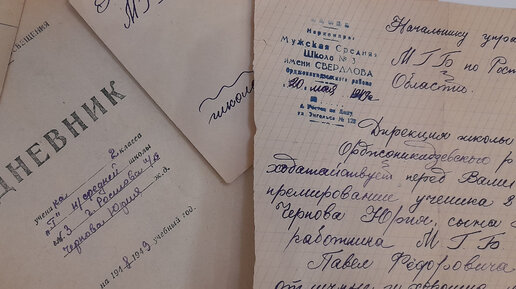 ПРОСВЕЩЕНИЯ
ДНЕВНИК
учени ка 2 класса
"Г" м/средней школы
№ 3 г. Ростова н/Д
Чернова Юрия
на 1948/1949 учебный год.
МГБ
школ
Наркомпрос
Мужская Средняя
Школа № 3
имени СВЕРДЛОВА
Орджоникидзевского района
"20" мая 1949г.
г. Ростов на Дону
ул. Энгельса №
Начальнику упра
МГБ по Рост
Области.
Дирекция школы
Орджоникидзевского р
ходатайствует перед Вами
премирование ученика 2
Чернова Юрия, сына
работника МГБ
Павел Федорович